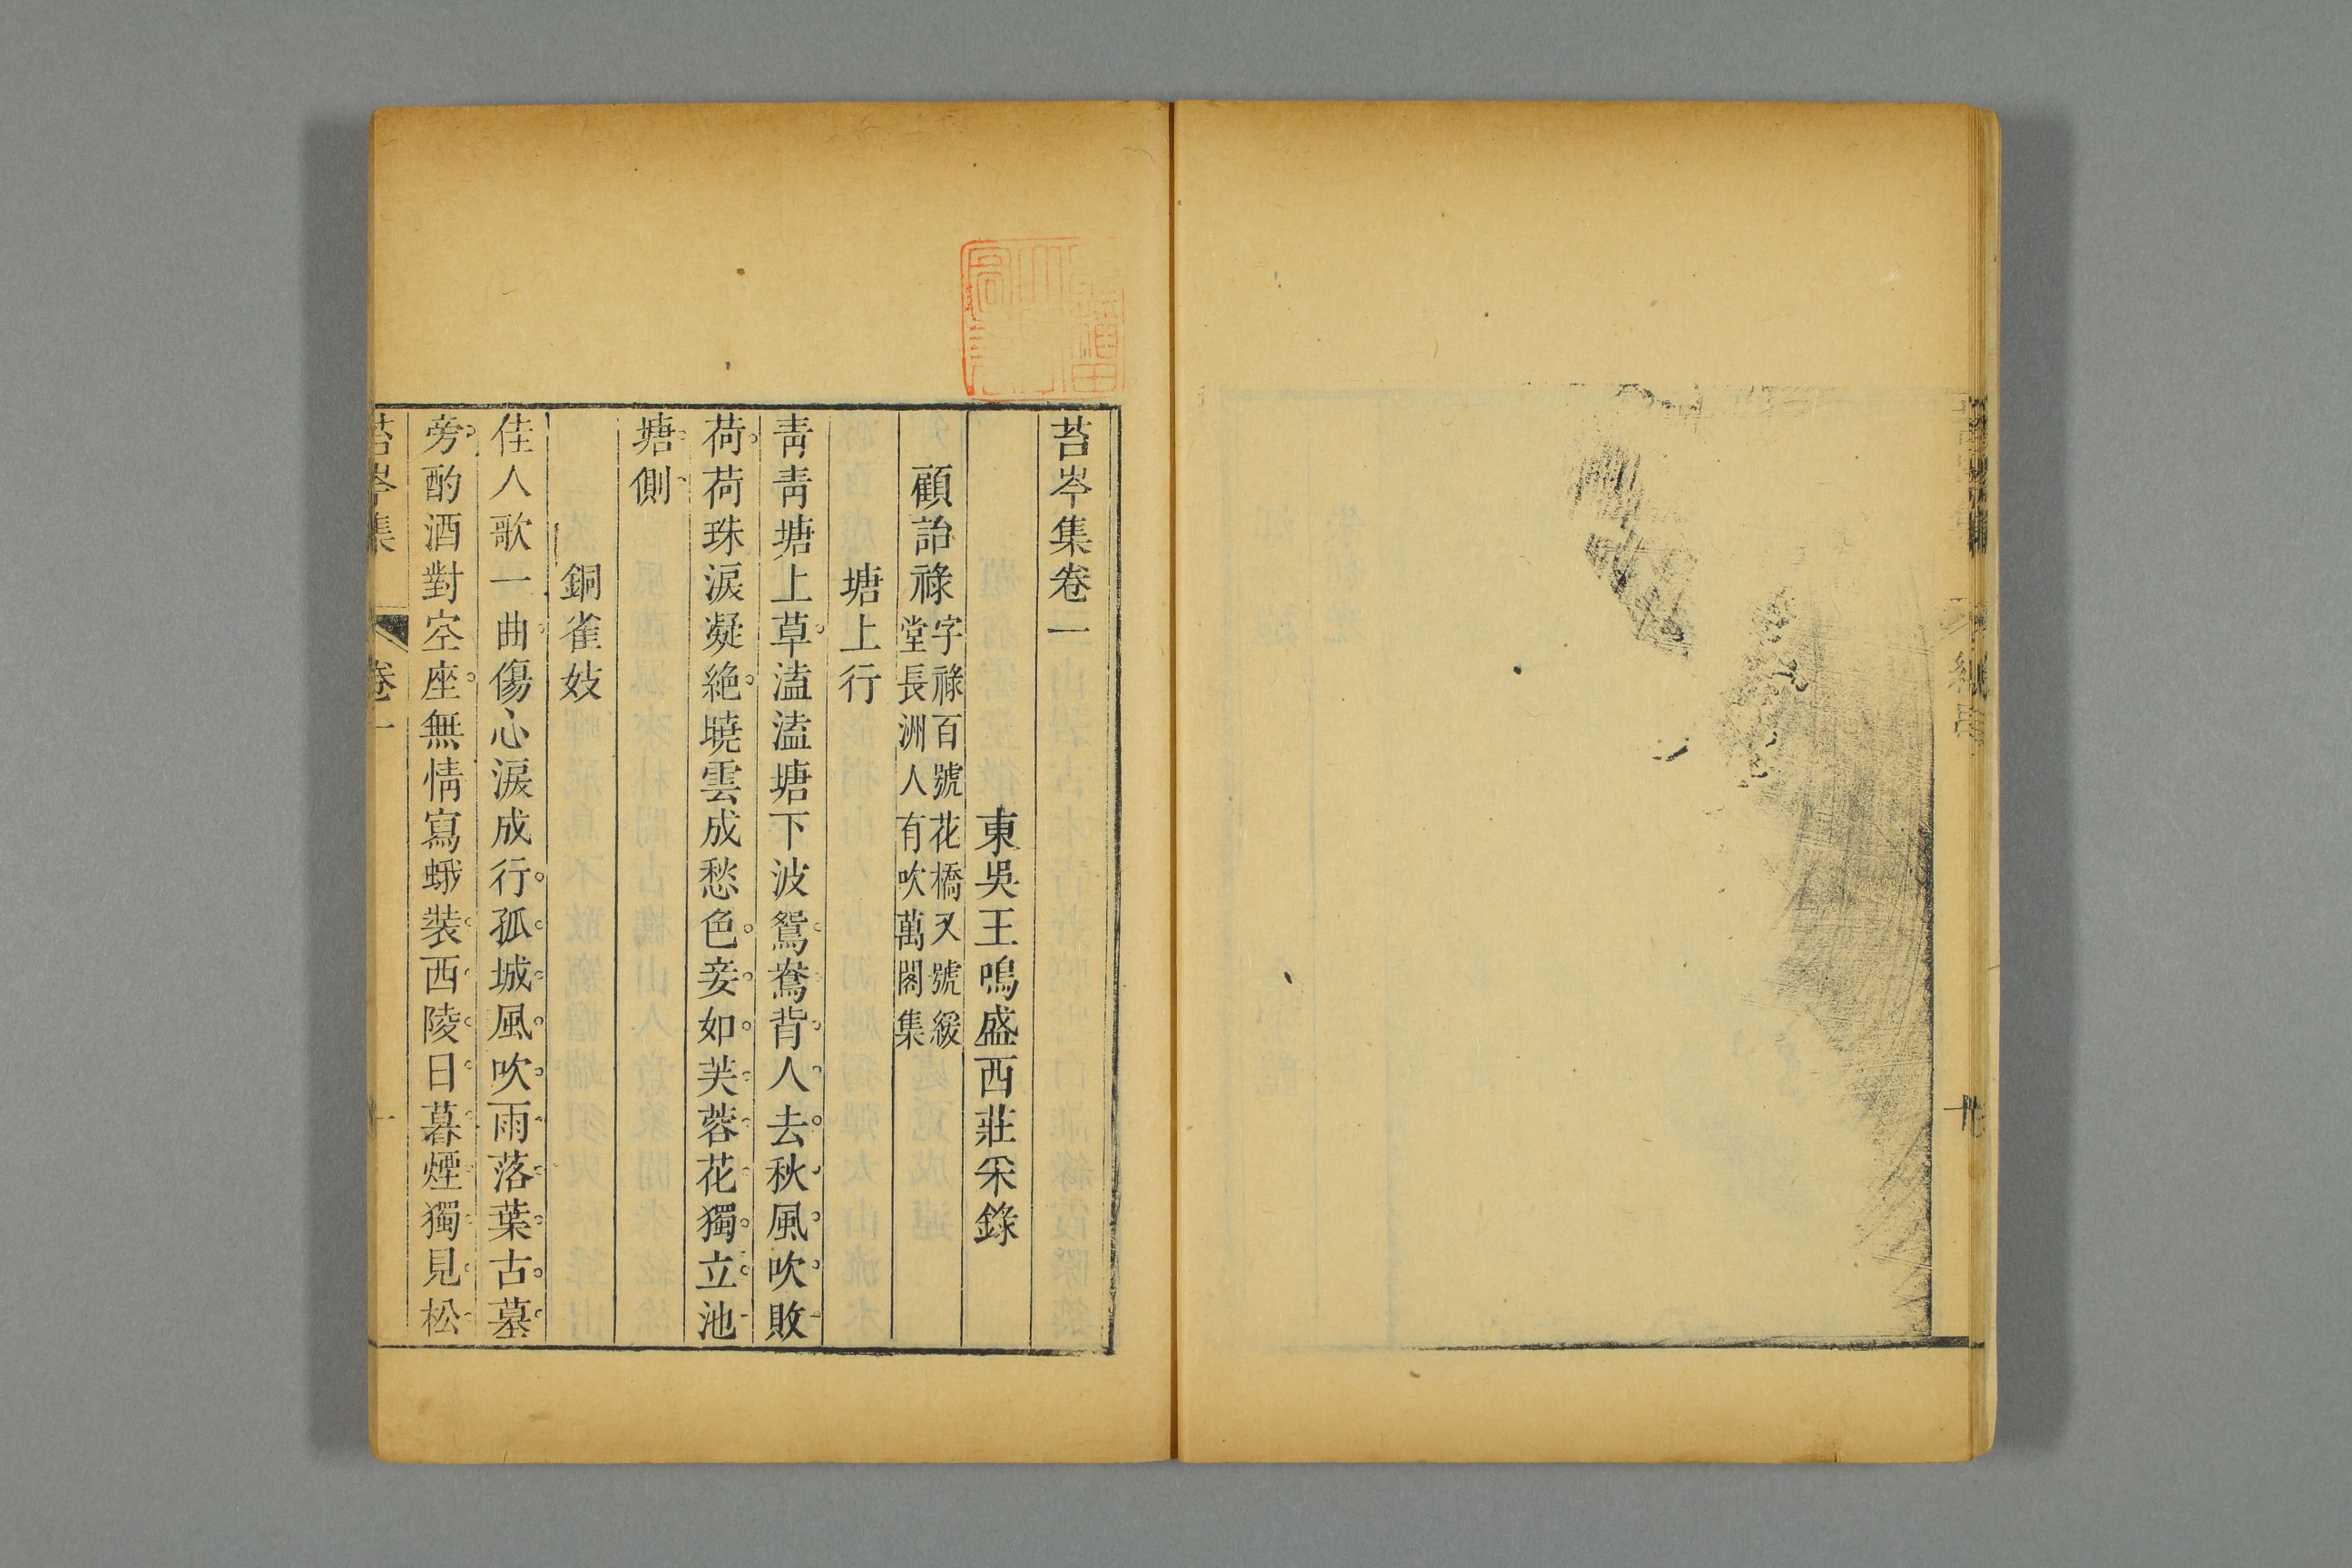 苔岑集卷一
東吳王鳴盛西莊采錄
顧詒祿字祿百號花橋又號緩
堂長洲人有吹萬閣集
塘上行
青青塘上草溘溘塘下波鴛鴦背人去秋風吹敗
荷荷珠淚凝絶曉雲成愁色妾如芙蓉花獨立池
塘側
銅雀妓
佳人歌一曲傷心淚成行孤城風吹雨落葉古墓
旁酌酒對空座無情寫蛾裝西陵日暮煙獨見松
苔岑集 卷一 一